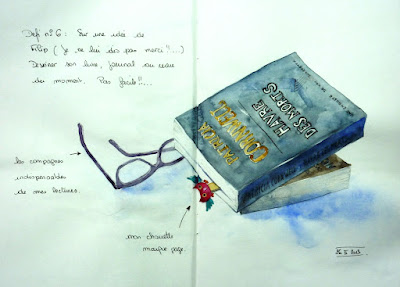 Défi n° 6 : Sur une idée de
Flip ( Je ne lui dis pas merci !!...)
Dessiner son livre, journal ou revue
du moment. Pas facile !!...
PATRICIA
CORNWELL
HAVRE
DES MORTS
les compagnes
indispensables
de mes lectures.
mon chouette
marque page.